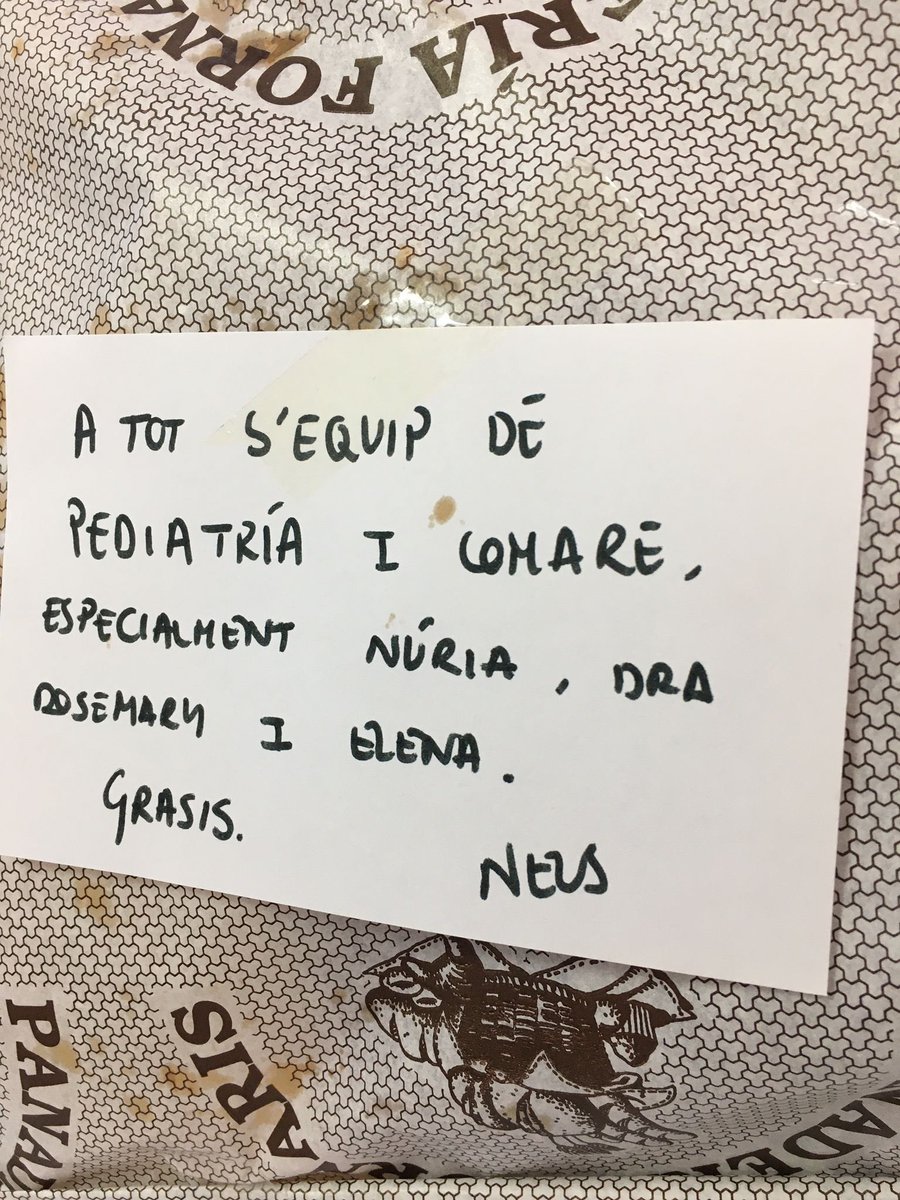 RÍA FORNA
A TOT S'EQUIP DÉ
PEDIATRÍA I COMARE,
ESPECIALMENT NÚRIA, DRA
ROSEMARY I ELENA.
GRASIS.
NEUS
PANAD
ARIS
NADER